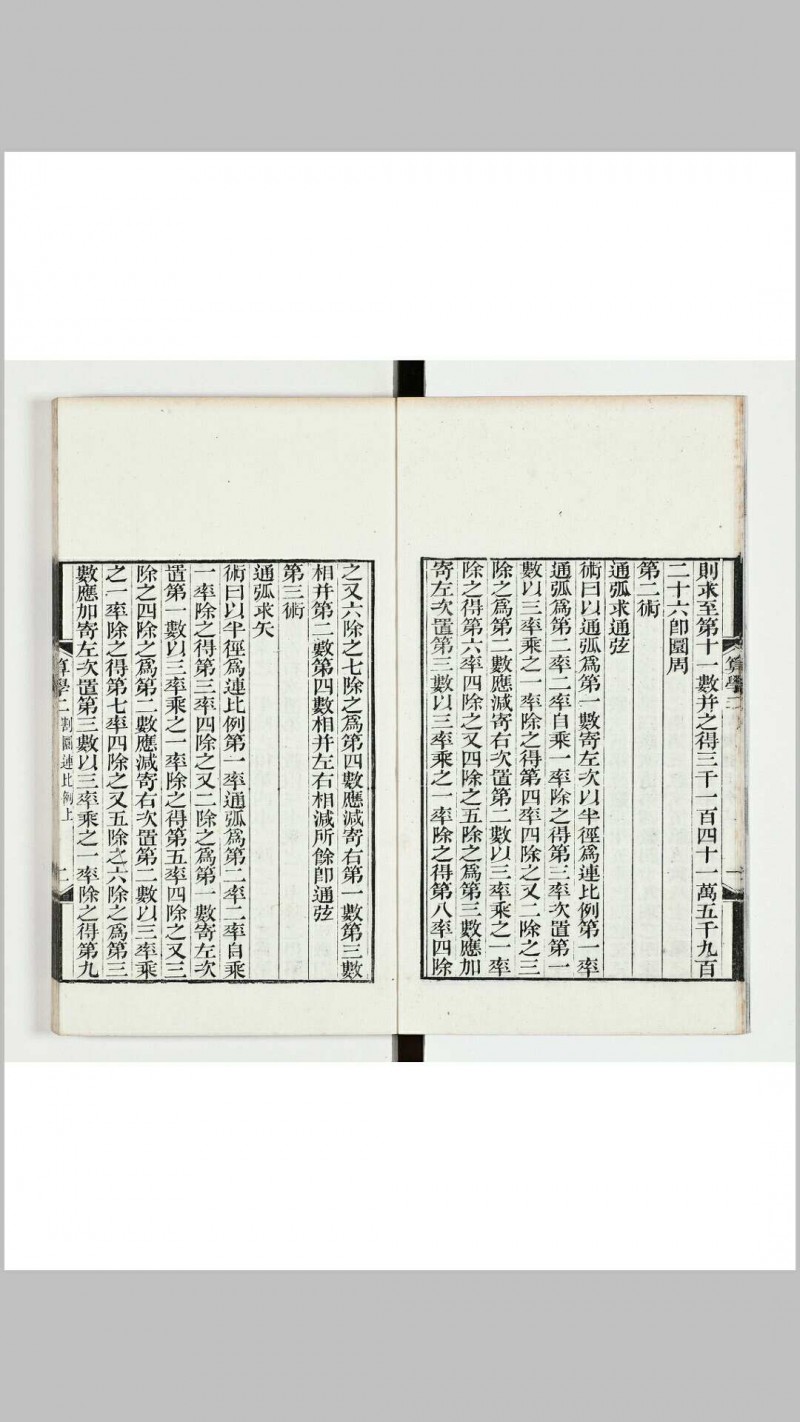 則求至第十一數并之得三千一百四十一萬五千九百
二十六卽圜周
第二術
通弧求通弦
術曰以通弧爲第一數寄左次以半徑爲連比例第一率
通弧爲第二率二率自乘一率除之得第三率次置第一
數以三率乘之一率除之得第四率四除之又二除之三
除之爲第二數應減寄右次置第二數以三率乘之一率
除之得第六率四除之又四除之五除之爲第三數應加
寄左次置第三數以三率乘之一率除之得第八率四除
之又六除之七除之爲第四數應減寄右第一數第三數
相并第二數第四數相并左右相減所餘卽通弦
第三術
通弧求矢
術曰以半徑爲連比例第一率通弧爲第二率二率自乘
一率除之得第三率四除之又二除之爲第一數寄左次
置第一數以三率乘之一率除之得第五率四除之又三
除之四除之爲第二數應減寄右次置第二數以三率乘
之一率除之得第七率四除之又五除之六除之爲第三
數應加寄左次置第三數以三率乘之一率除之得第九
算學二 割圜連比例上 二